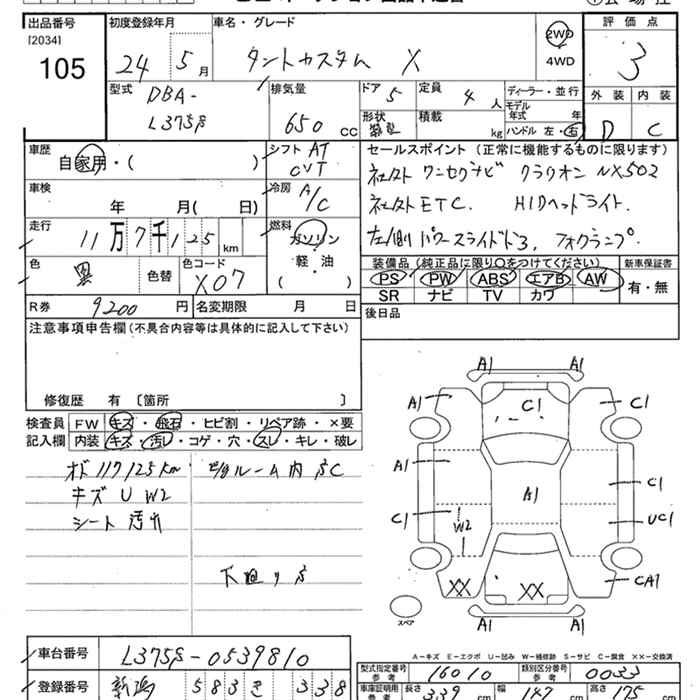 出品番号 初度登録年月 車名・グレード 評価点
[2034]
105
24 5月 タントカスタム X 2WD 4WD 3
型式 DBA-L375S
排気量 650 CC
ドア 5 定員 4人 ディーラー・並行
形状 積載 kg モデル年式 年
ハンドル 左・右
外装 内装
D C
車歴 自家用・( )
シフト AT CVT
車検 年 月( 日)
冷房 A/C
走行 11万7千125km
燃料 ガソリン・軽・油 ( )
色 黒 色替 色コード X07
R券 9200円 名変期限 月 日
セールスポイント(正常に機能するものに限ります)
社外 ワンセグナビ クラリオン NX502
社外ETC. HIDヘッドライト.
左側パワースライドドア, フォグランプ.
装備品(純正品に限り○をつけてください) 新車保証書
PS PW ABS エアB AW 有・無
SR ナビ TV カワ
後日品
注意事項申告欄(不具合内容等は具体的に記入して下さい)
修復歴 有 〔箇所 〕
検査員 FW キズ・飛石・ヒビ割・リペア跡・×要
記入欄 内装 キズ・汚レ・コゲ・穴・スレ・キレ・破レ
オド117125km
キズ U W2
シート 汚れ
ルーム内 SC
下廻りS
A1 A1
A1 C1 C1
A1 C1
A1
C1 W2 UC1
XX XX CA1
A1 A1
スペア
A-キズ E-エクボ U-凹み W-補修跡 S-サビ C-腐食 XX-交換済
車台番号 L375S-0539810
型式指定番号 参考 16010 類別区分番号 参考 0033
登録番号 新潟 583 き 338
車庫証明用 参考 長さ 339 cm 幅 147 cm 高さ 175 cm